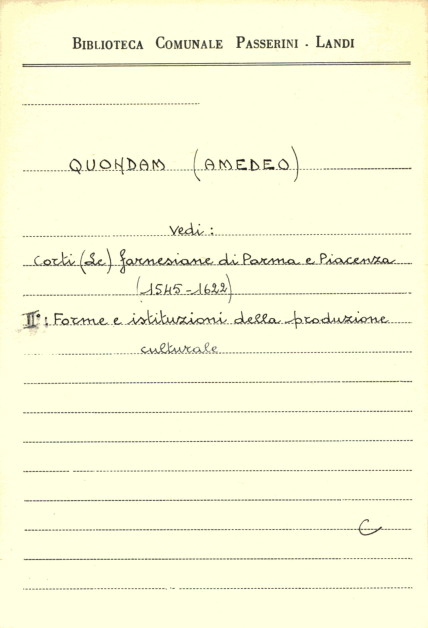 BIBLIOTECA COMUNALE PASSERINI - LANDI
QUONDAM (AMEDEO)
Vedi:
Corti (Le) farnesiane di Parma e Piacenza
(1545-1622)
II°: Forme e istituzioni della produzione
culturale
C